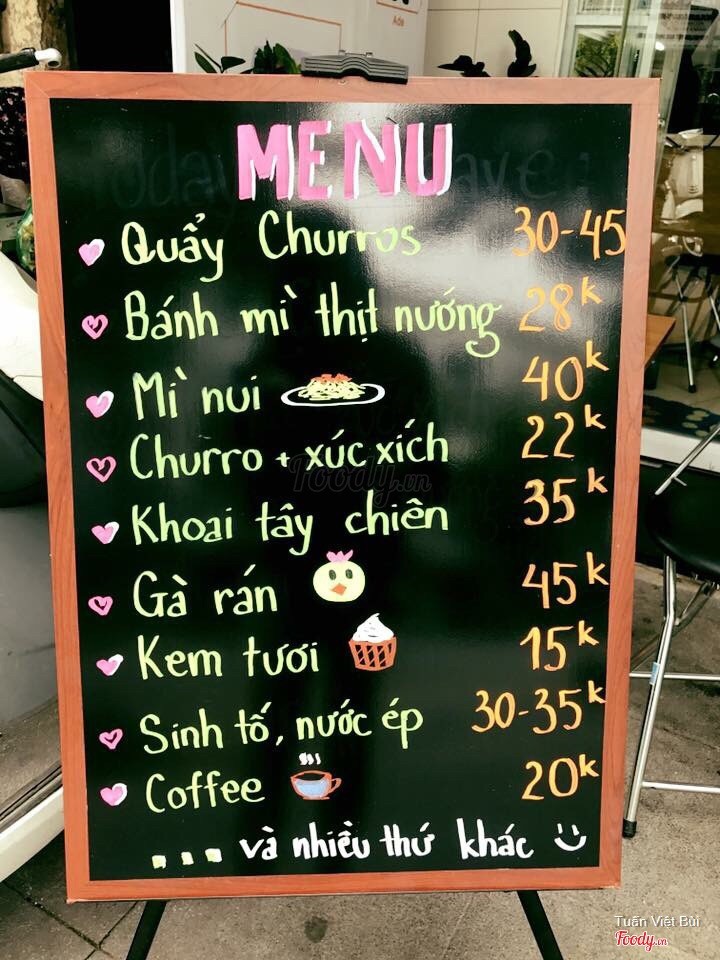 Ade
MENU
Quẩy Churros 30-45
Bánh mì thịt nướng 28k
Mì nui 40k
Churro + xúc xích 22k
Khoai tây chiên 35k
Gà rán 45k
Kem tươi 15k
Sinh tố, nước ép 30-35k
Coffee 20k
... và nhiều thứ khác
Foody.vn
Tuấn Việt Bùi
Foody.vn